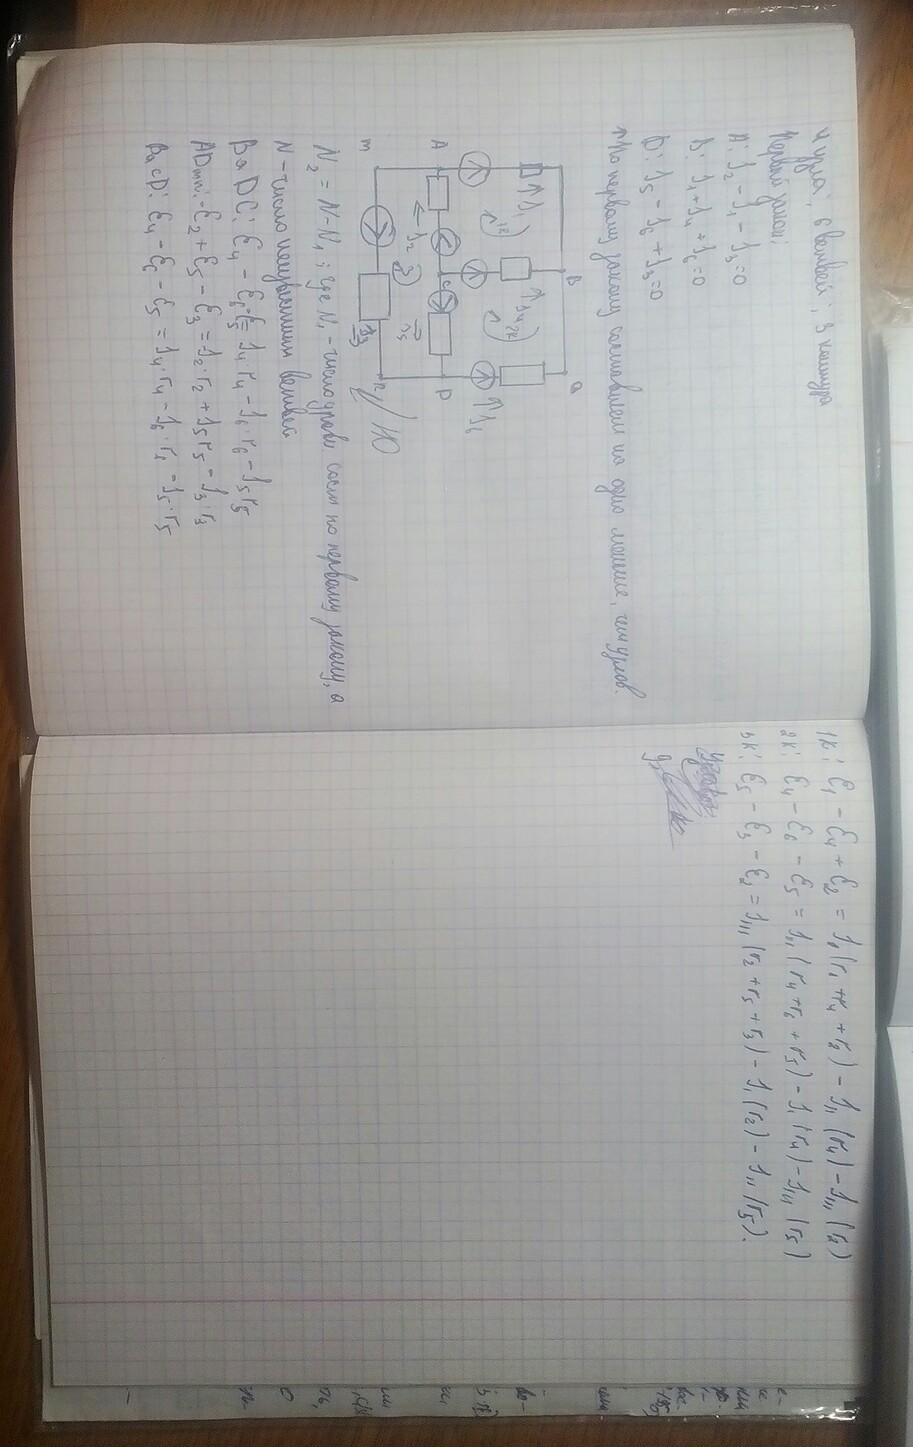 4 узла, 6 ветвей, 3 контура
Первый закон:
A: I₂ - I₁ - I₃ = 0
B: I₁ + I₄ + I₆ = 0
D: I₅ - I₆ + I₃ = 0
По первому закону составляем на одно меньше, чем узлов.
B a
I₁ 1к I₄ 2к I₆
A C D
I₂ 3 I₅
m I₃ n
N₂ = N - N₁; где N₁ - число уравн сост по первому закону, а
N - число неизвестных ветвей
BaDC: ℰ₄ - ℰ₆ - ℰ₅ = I₄ r₄ - I₆ · r₆ - I₅ r₅
ADmn: -ℰ₂ + ℰ₅ - ℰ₃ = I₂ · r₂ + I₅ r₅ - I₃ · r₃
BacD: ℰ₄ - ℰ₆ - ℰ₅ = I₄ · r₄ - I₆ · r₁ - I₅ · r₅
1к: ℰ₁ - ℰ₄ + ℰ₂ = I₁ (r₁ + r₄ + r₂) - I₁₁ (r₄) - I₁₁₁ (r₂)
2к: ℰ₄ - ℰ₆ - ℰ₅ = I₁₁ (r₄ + r₆ + r₅) - I₁ (r₄) - I₁₁₁ (r₅)
3к: ℰ₅ - ℰ₃ - ℰ₂ = I₁₁₁ (r₂ + r₅ + r₃) - I₁ (r₂) - I₁₁ (r₅).